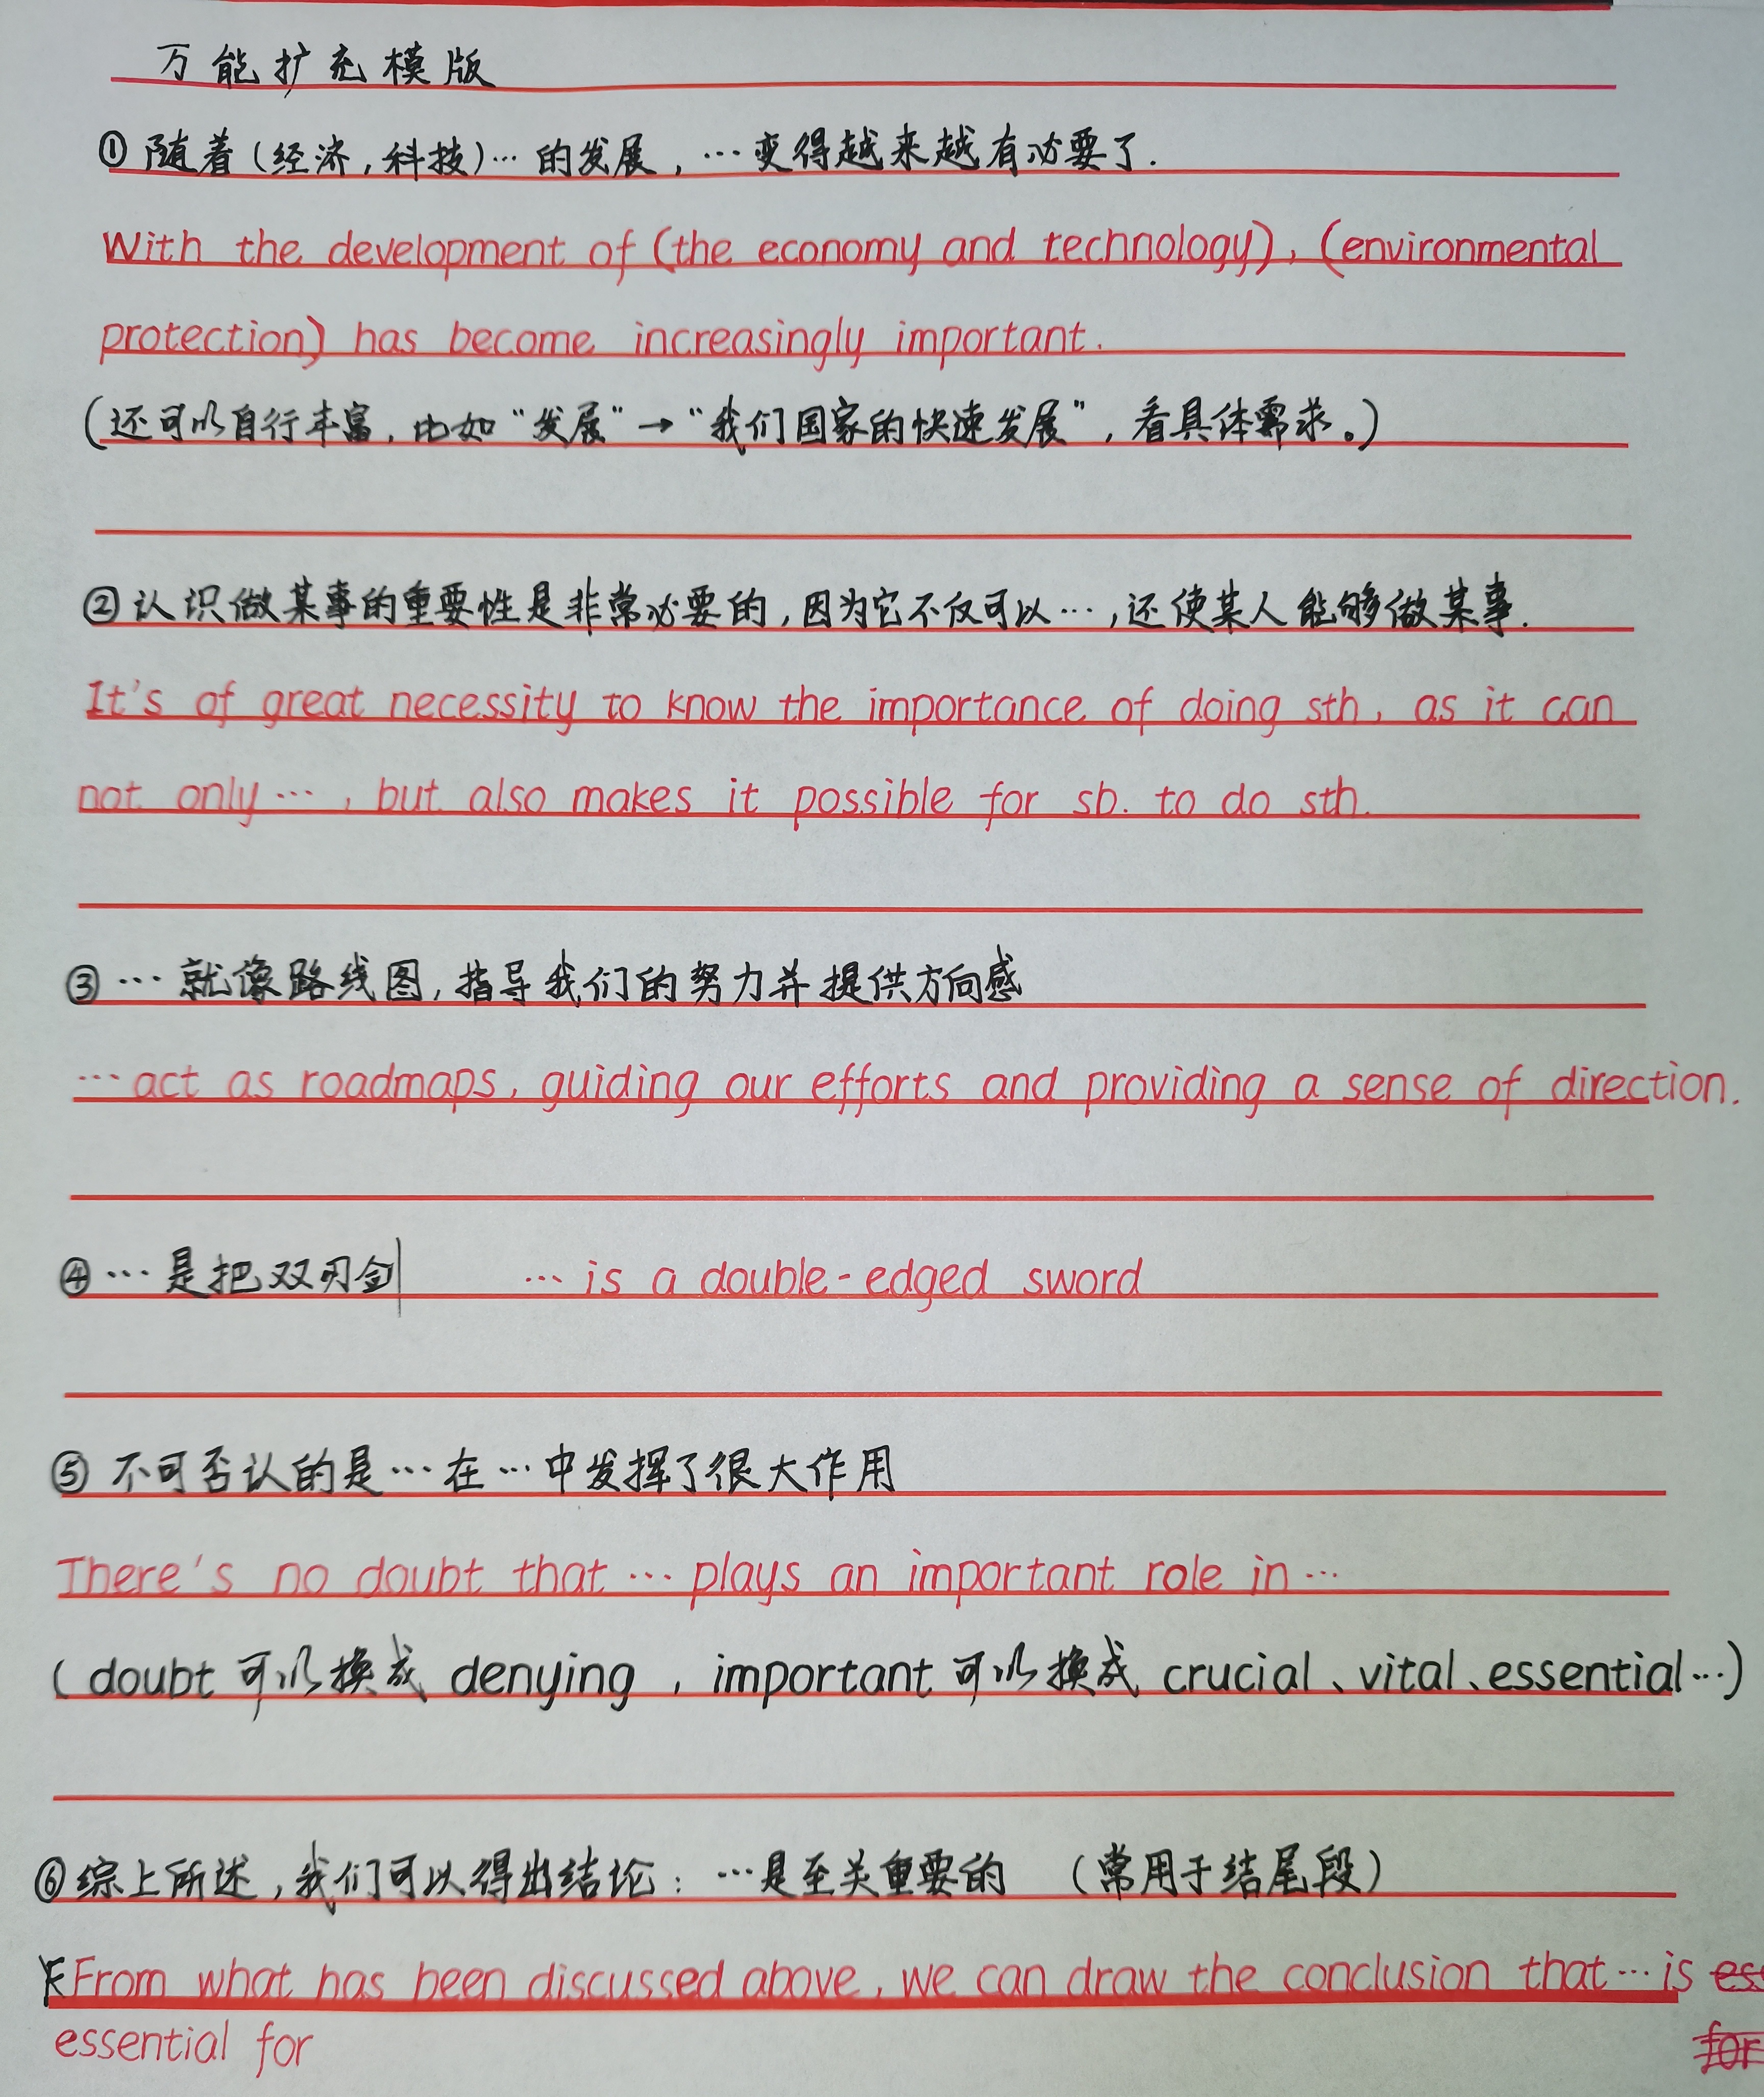 万能扩充模版
①随着(经济,科技)…的发展,…变得越来越有必要了.
With the development of (the economy and technology), (environmental
protection) has become increasingly important.
(还可以自行丰富,比如“发展”→“我们国家的快速发展”,看具体需求。)
②认识做某事的重要性是非常必要的,因为它不仅可以…,还使某人能够做某事.
It's of great necessity to know the importance of doing sth, as it can
not only…, but also makes it possible for sb. to do sth.
③…就像路线图,指导我们的努力并提供方向感
…act as roadmaps, guiding our efforts and providing a sense of direction.
④…是把双刃剑 …is a double-edged sword
⑤不可否认的是…在…中发挥了很大作用
There's no doubt that…plays an important role in…
(doubt可以换成denying,important可以换成crucial、vital、essential…)
⑥综上所述,我们可以得出结论:…是至关重要的 (常用于结尾段)
From what has been discussed above, we can draw the conclusion that…is es
essential for for